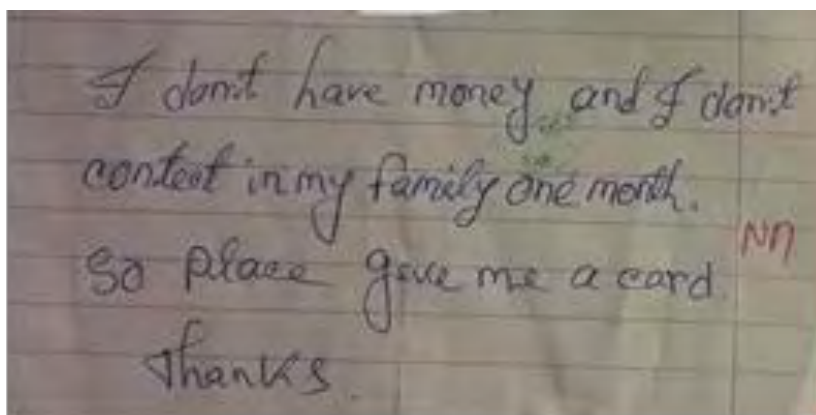 I don't have money and I don't
contect in my family one month. NM
So place give me a card.
Thanks.